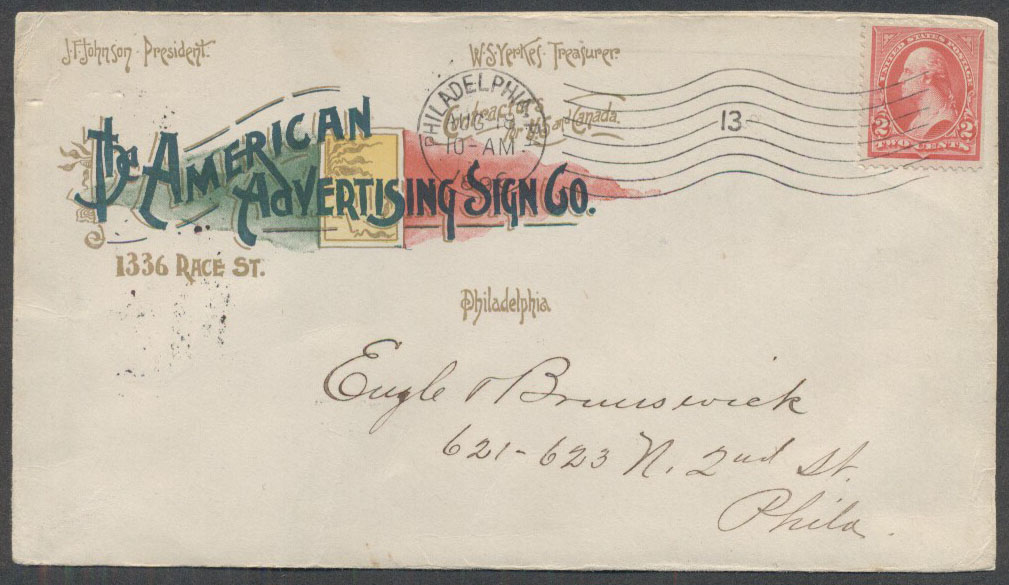 J.F. Johnson · President.
W.S. Yerkes · Treasurer.
The American
Advertising Sign Co.
Contractors
for U.S. and Canada.
1336 Race St.
Philadelphia
PHILADELPHIA,
10-AM
13
UNITED STATES POSTAGE
2 2
TWO CENTS
Engle & Brunswick
621-623 N. 2nd St.
Phila.